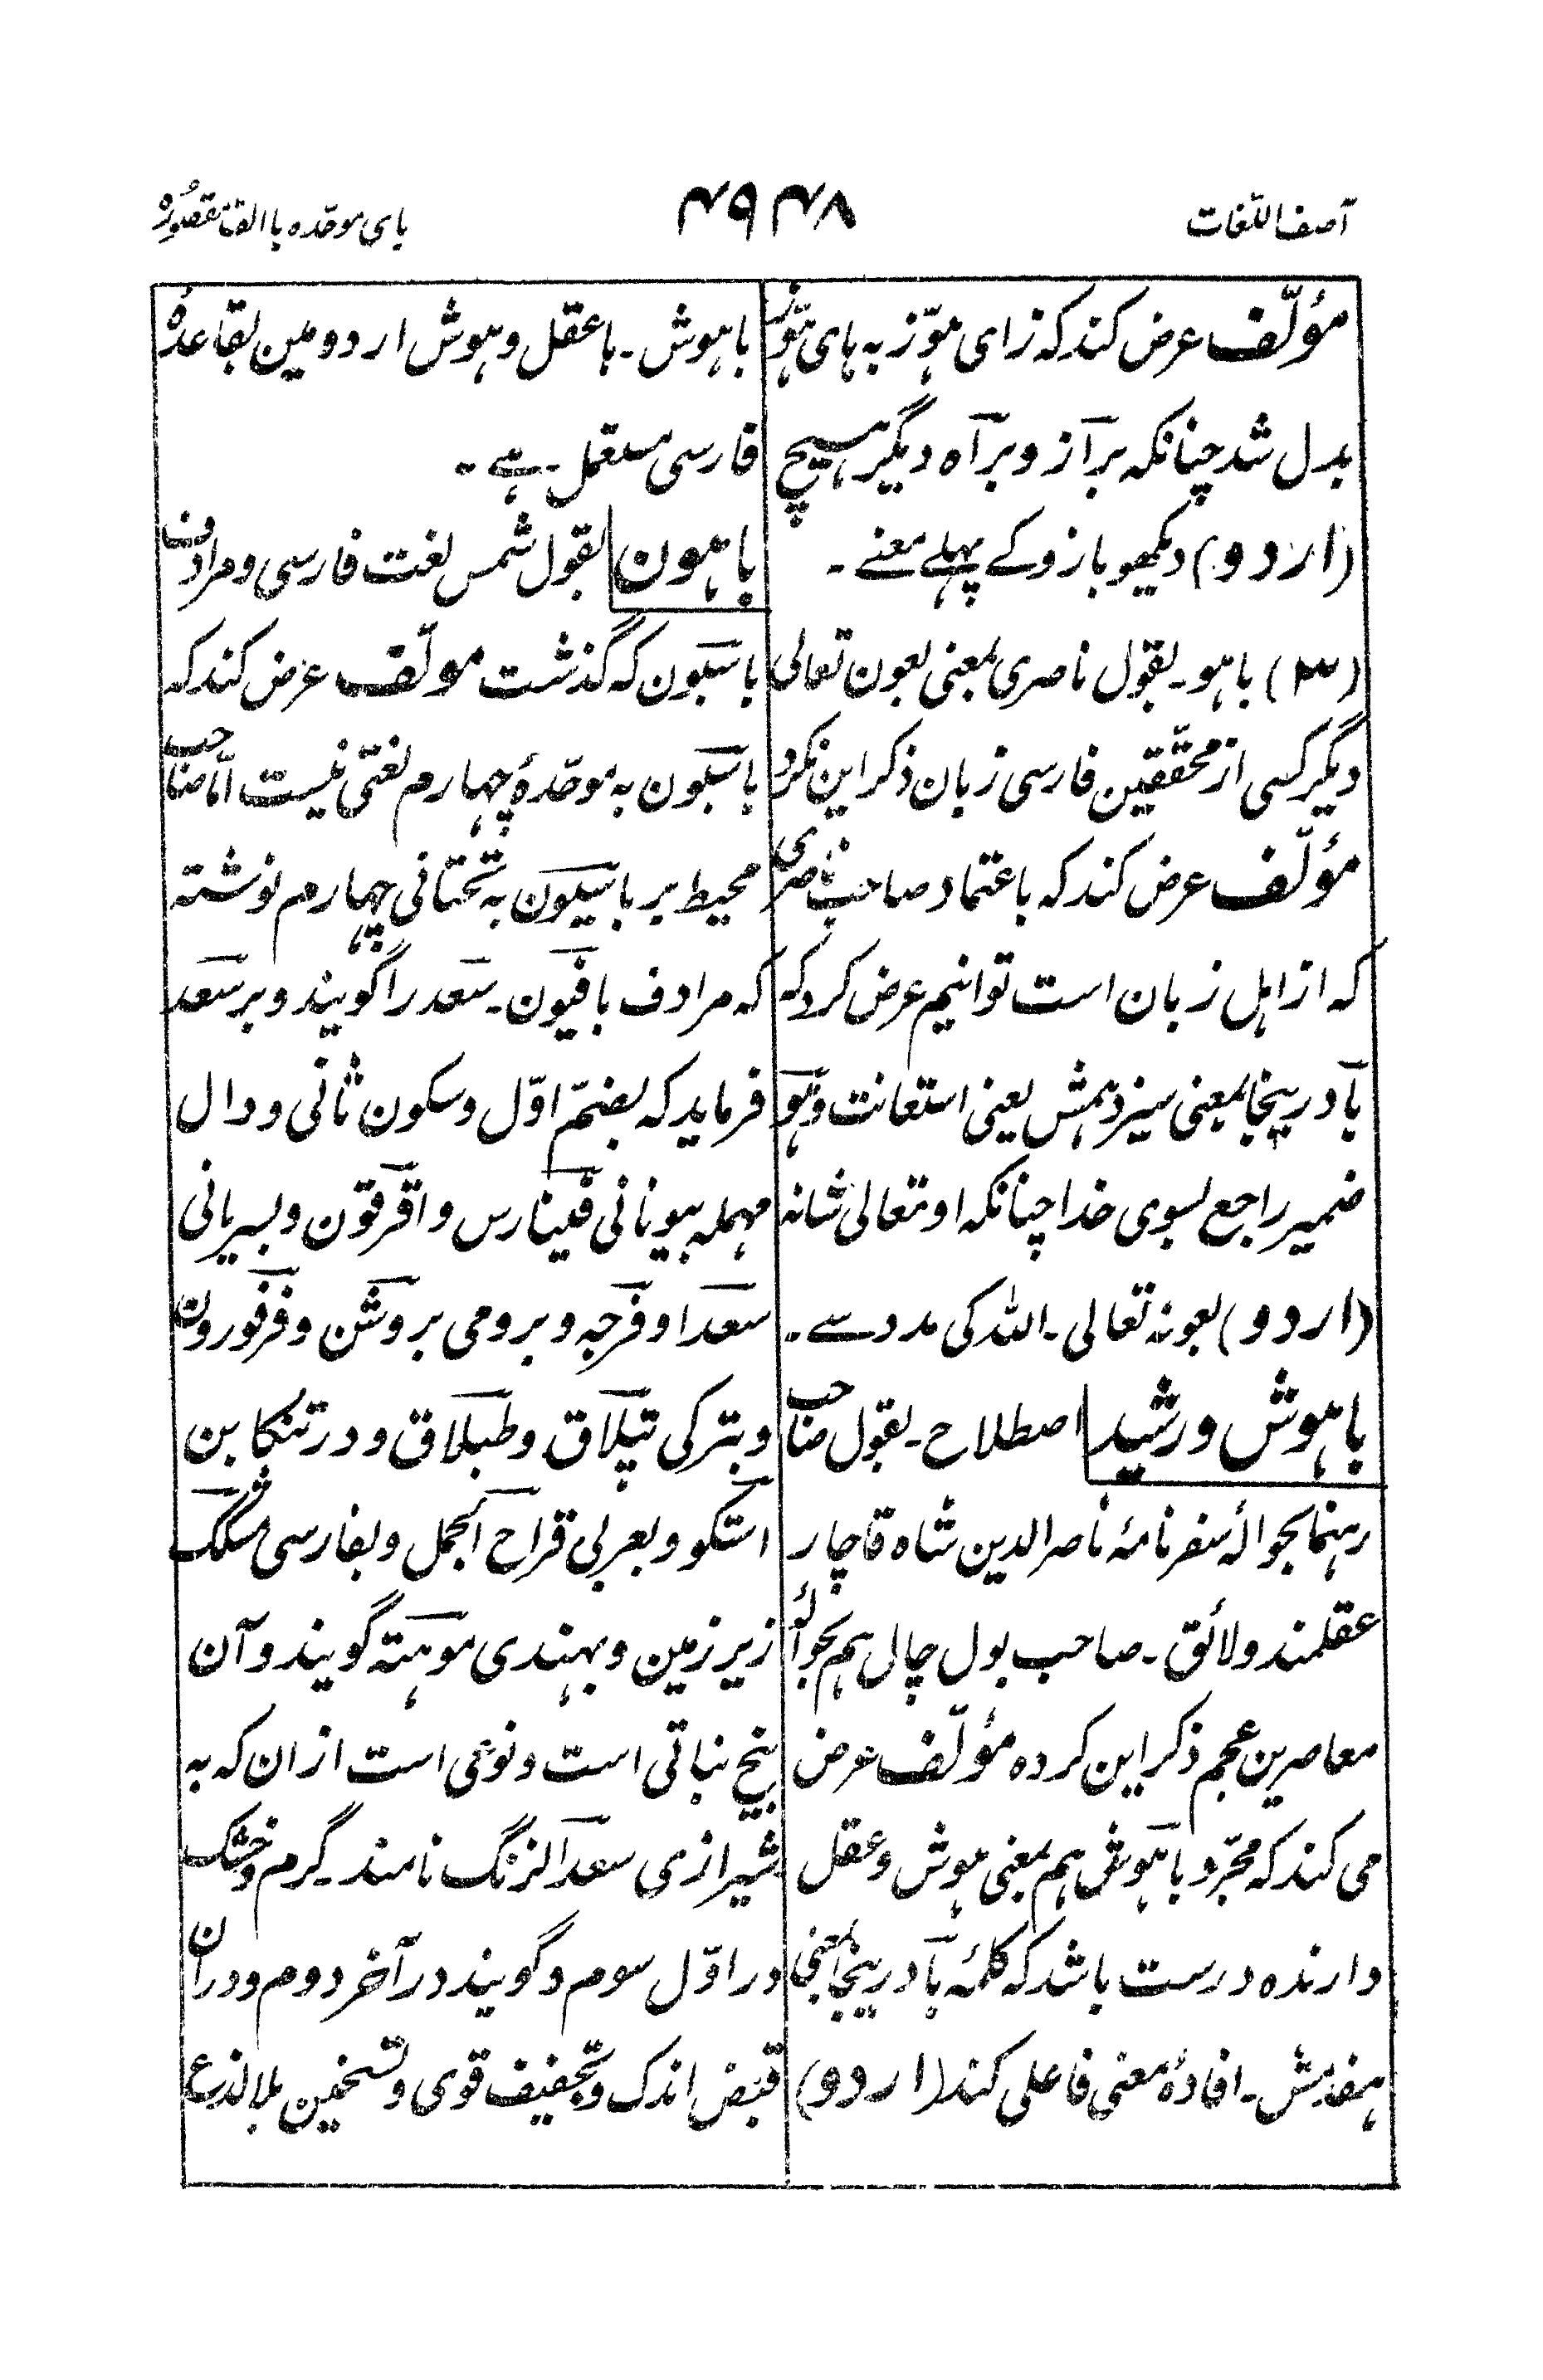 آصف اللّغات
۴۹۴۸
بای موحّده با الف مقصوره
مؤلّف عرض کند که زای هوّز به های هوّز
بدل شد چنانکه برآز و برآه دیگر هیچ
(اردو) دیکھو بازو کے پہلے معنے ۔
(۳) باهو ۔ بقول ناصری بمعنی بعون تعالی
دیگر کسی از محقّقین فارسی زبان ذکر این نکرد
مؤلّف عرض کند که باعتماد صاحب ناصری
که از اهل زبان است توانیم عرض کرد که
بآ درینجا بمعنی سیزدهمش یعنی استعانت و هوَ
ضمیر راجع بسوی خدا چنانکه او تعالی شانه
(اردو) بعونه تعالی ۔ الله کی مدد سے ۔
باهوش و رشید اصطلاح ۔ بقول صاحب
رهنما بحوالهٔ سفرنامهٔ ناصرالدین شاه قاچار
عقلمند و لائق ۔ صاحب بول چال هم بحوالهٔ
معاصرین عجم ذکر این کرده مؤلّف عرض
می کند که مجرّد باهوش هم بمعنی هوش و عقل
دارنده درست باشد که کلمهٔ بآ درینجا بمعنی
هفدهمش ۔ افادهٔ معنی فاعلی کند (اردو)
باهوش ۔ باعقل و هوش اردو مین بقاعدهٔ
فارسی مستعمل ہے ۔
باهون بقول شمس لغت فارسی و مرادف
باسبون که گذشت مولّف عرض کند که
باسبون به موحّدهٔ چهارم لغتی نیست امّا صاحب
محیط بر باسیلون به تحتانی چهارم نوشته
که مرادف بافیون ۔ سعد را گویند و بر سعد
فرماید که بضمّ اوّل و سکون ثانی و دال
مهمله بیونانی فینارس و اقرقون و بسریانی
سعدا و فرجه و برومی بروشن و فرفورون
و بترکی تپلاق و طبلاق و در تنکابن
استکو و بعربی قراح الجمل و بفارسی مشکک
زیر زمین و بهندی موهته گویند و آن
بیخ نباتی است و نوعی است ازان که به
شیرازی سعد الزنگ نامند ۔ گرم و خشک
در اوّل سوم و گویند در آخر دوم و در ان
قبض اندک و تجفیف قوی و تسخین بلا لذع